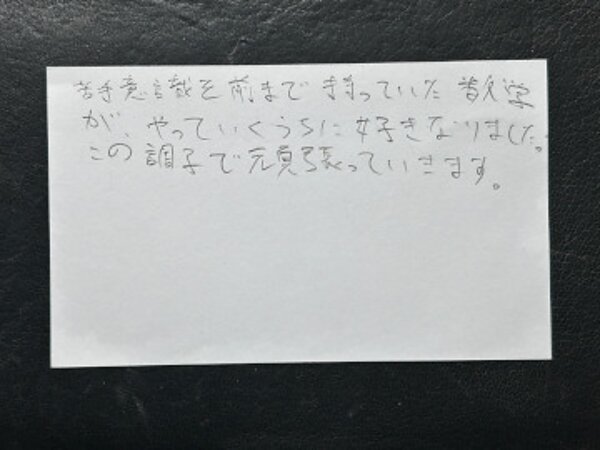 苦手意識を前まで持っていた数学
が、やっていくうちに好きなりました。
この調子で元頑張っていきます。